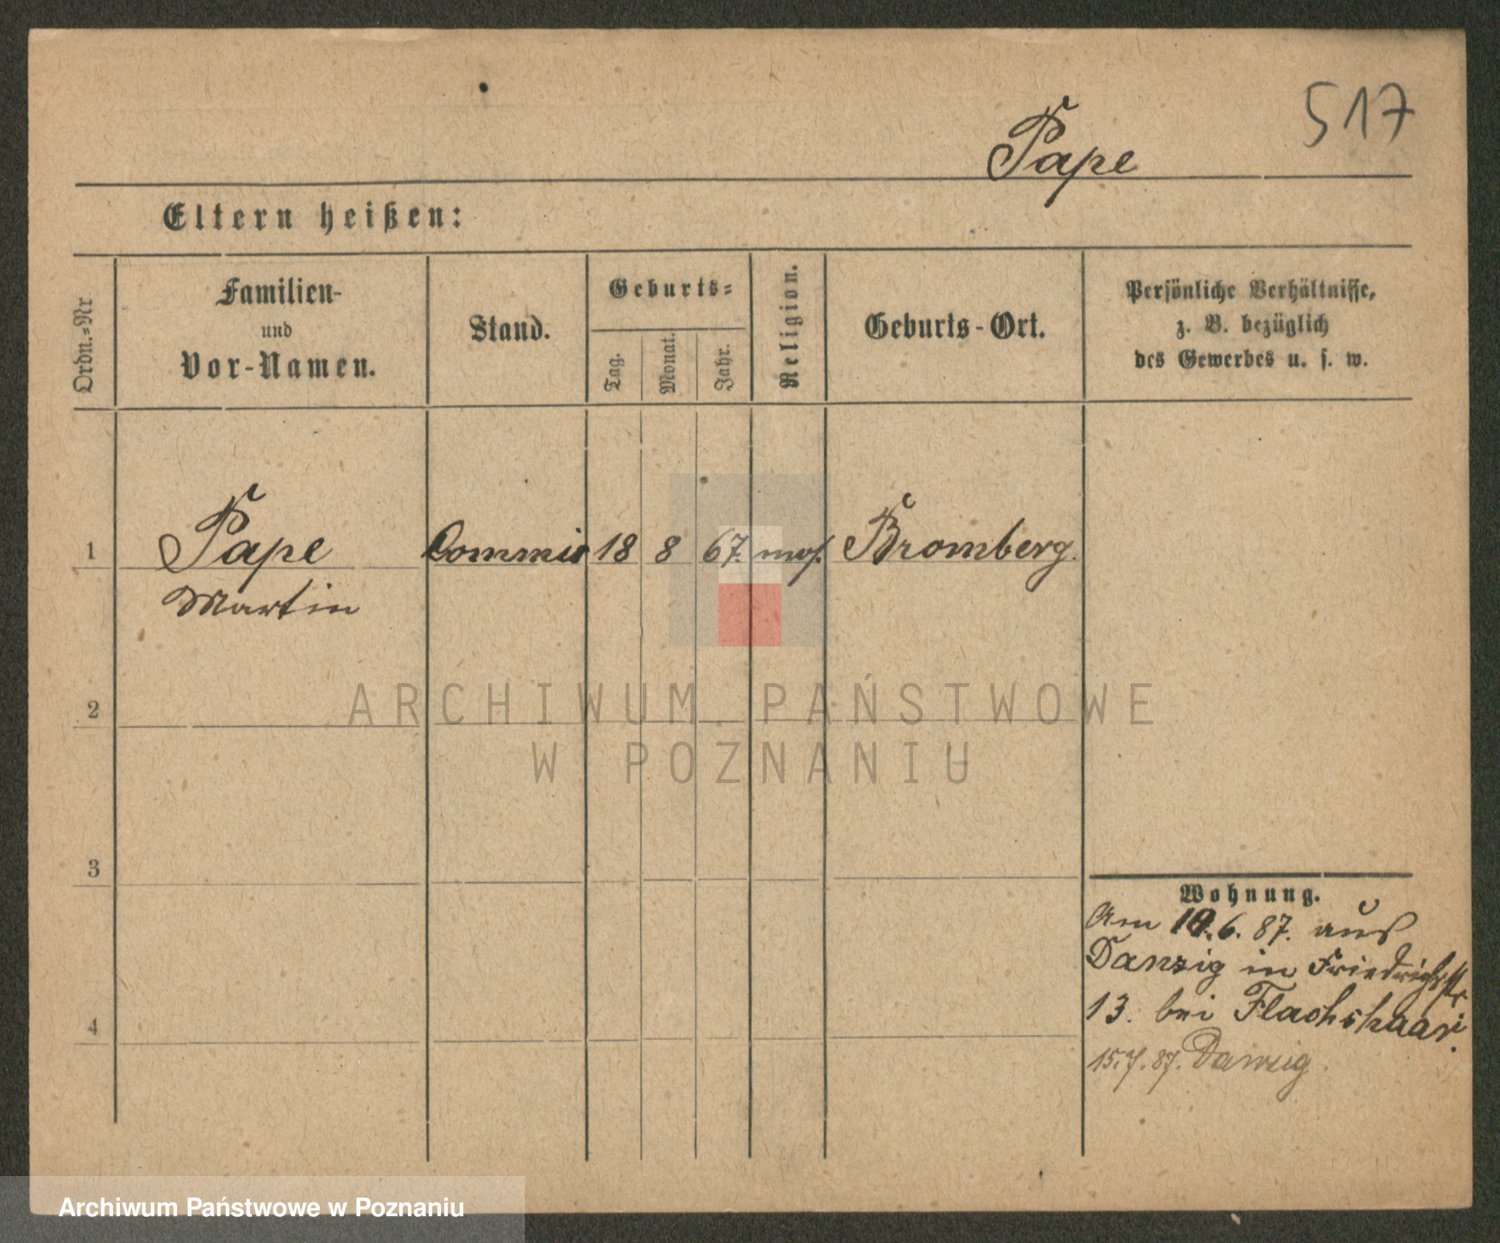 517
Pape
Eltern heißen:
Ordn.=Nr
Familien-
und
Vor-Namen.
Stand.
Geburts=
Tag.
Monat.
Jahr.
Religion.
Geburts-Ort.
Persönliche Verhältnisse,
z. B. bezüglich
des Gewerbes u. s. w.
1
Pape
Martin
Commis
18
8
67.
mos.
Bromberg.
2
ARCHIWUM PAŃSTWOWE
W POZNANIU
3
Wohnung.
Am 19.6.87. aus
Danzig in Friedrichstr
13. bei Flachshaar.
4
15.7.87. Danzig.
Archiwum Państwowe w Poznaniu